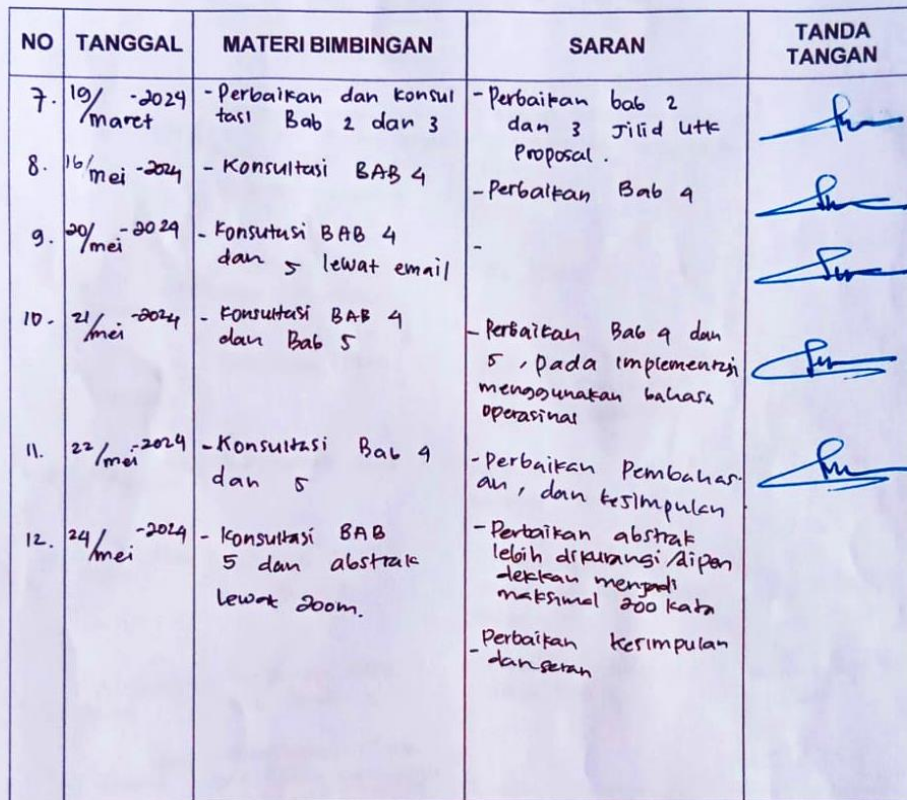 NO TANGGAL MATERI BIMBINGAN SARAN TANDA TANGAN
7. 19/maret-2024
- Perbaikan dan konsul
tasi Bab 2 dan 3
- Perbaikan bab 2
dan 3 Jilid utk
Proposal.
8. 16/mei-2024
- Konsultasi BAB 4
- Perbaikan Bab 4
9. 20/mei-2024
- Konsutasi BAB 4
dan 5 lewat email
-
10. 21/mei-2024
- Konsultasi BAB 4
dan Bab 5
- Perbaikan Bab 4 dan
5, pada implementasi
menggunakan bahasa
operasinas
11. 22/mei-2024
- Konsultasi Bab 4
dan 5
- Perbaikan Pembahas-
an, dan kesimpulan
12. 24/mei-2024
- Konsultasi BAB
5 dan abstrak
Lewat zoom.
- Perbaikan abstrak
lebih dikurangi /dipen
dekkan menjadi
maksimal 200 kata
- Perbaikan kesimpulan
dan saran